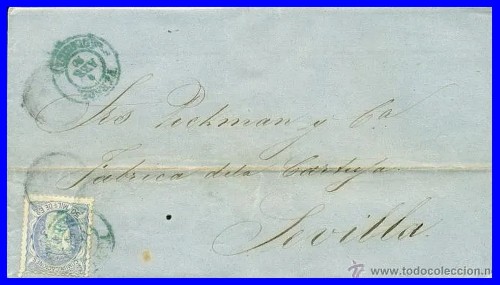 Sres Pickman y Ca
Fabrica de la Cartuja
Sevilla.
50 MILS DE E
www.todocoleccion.net